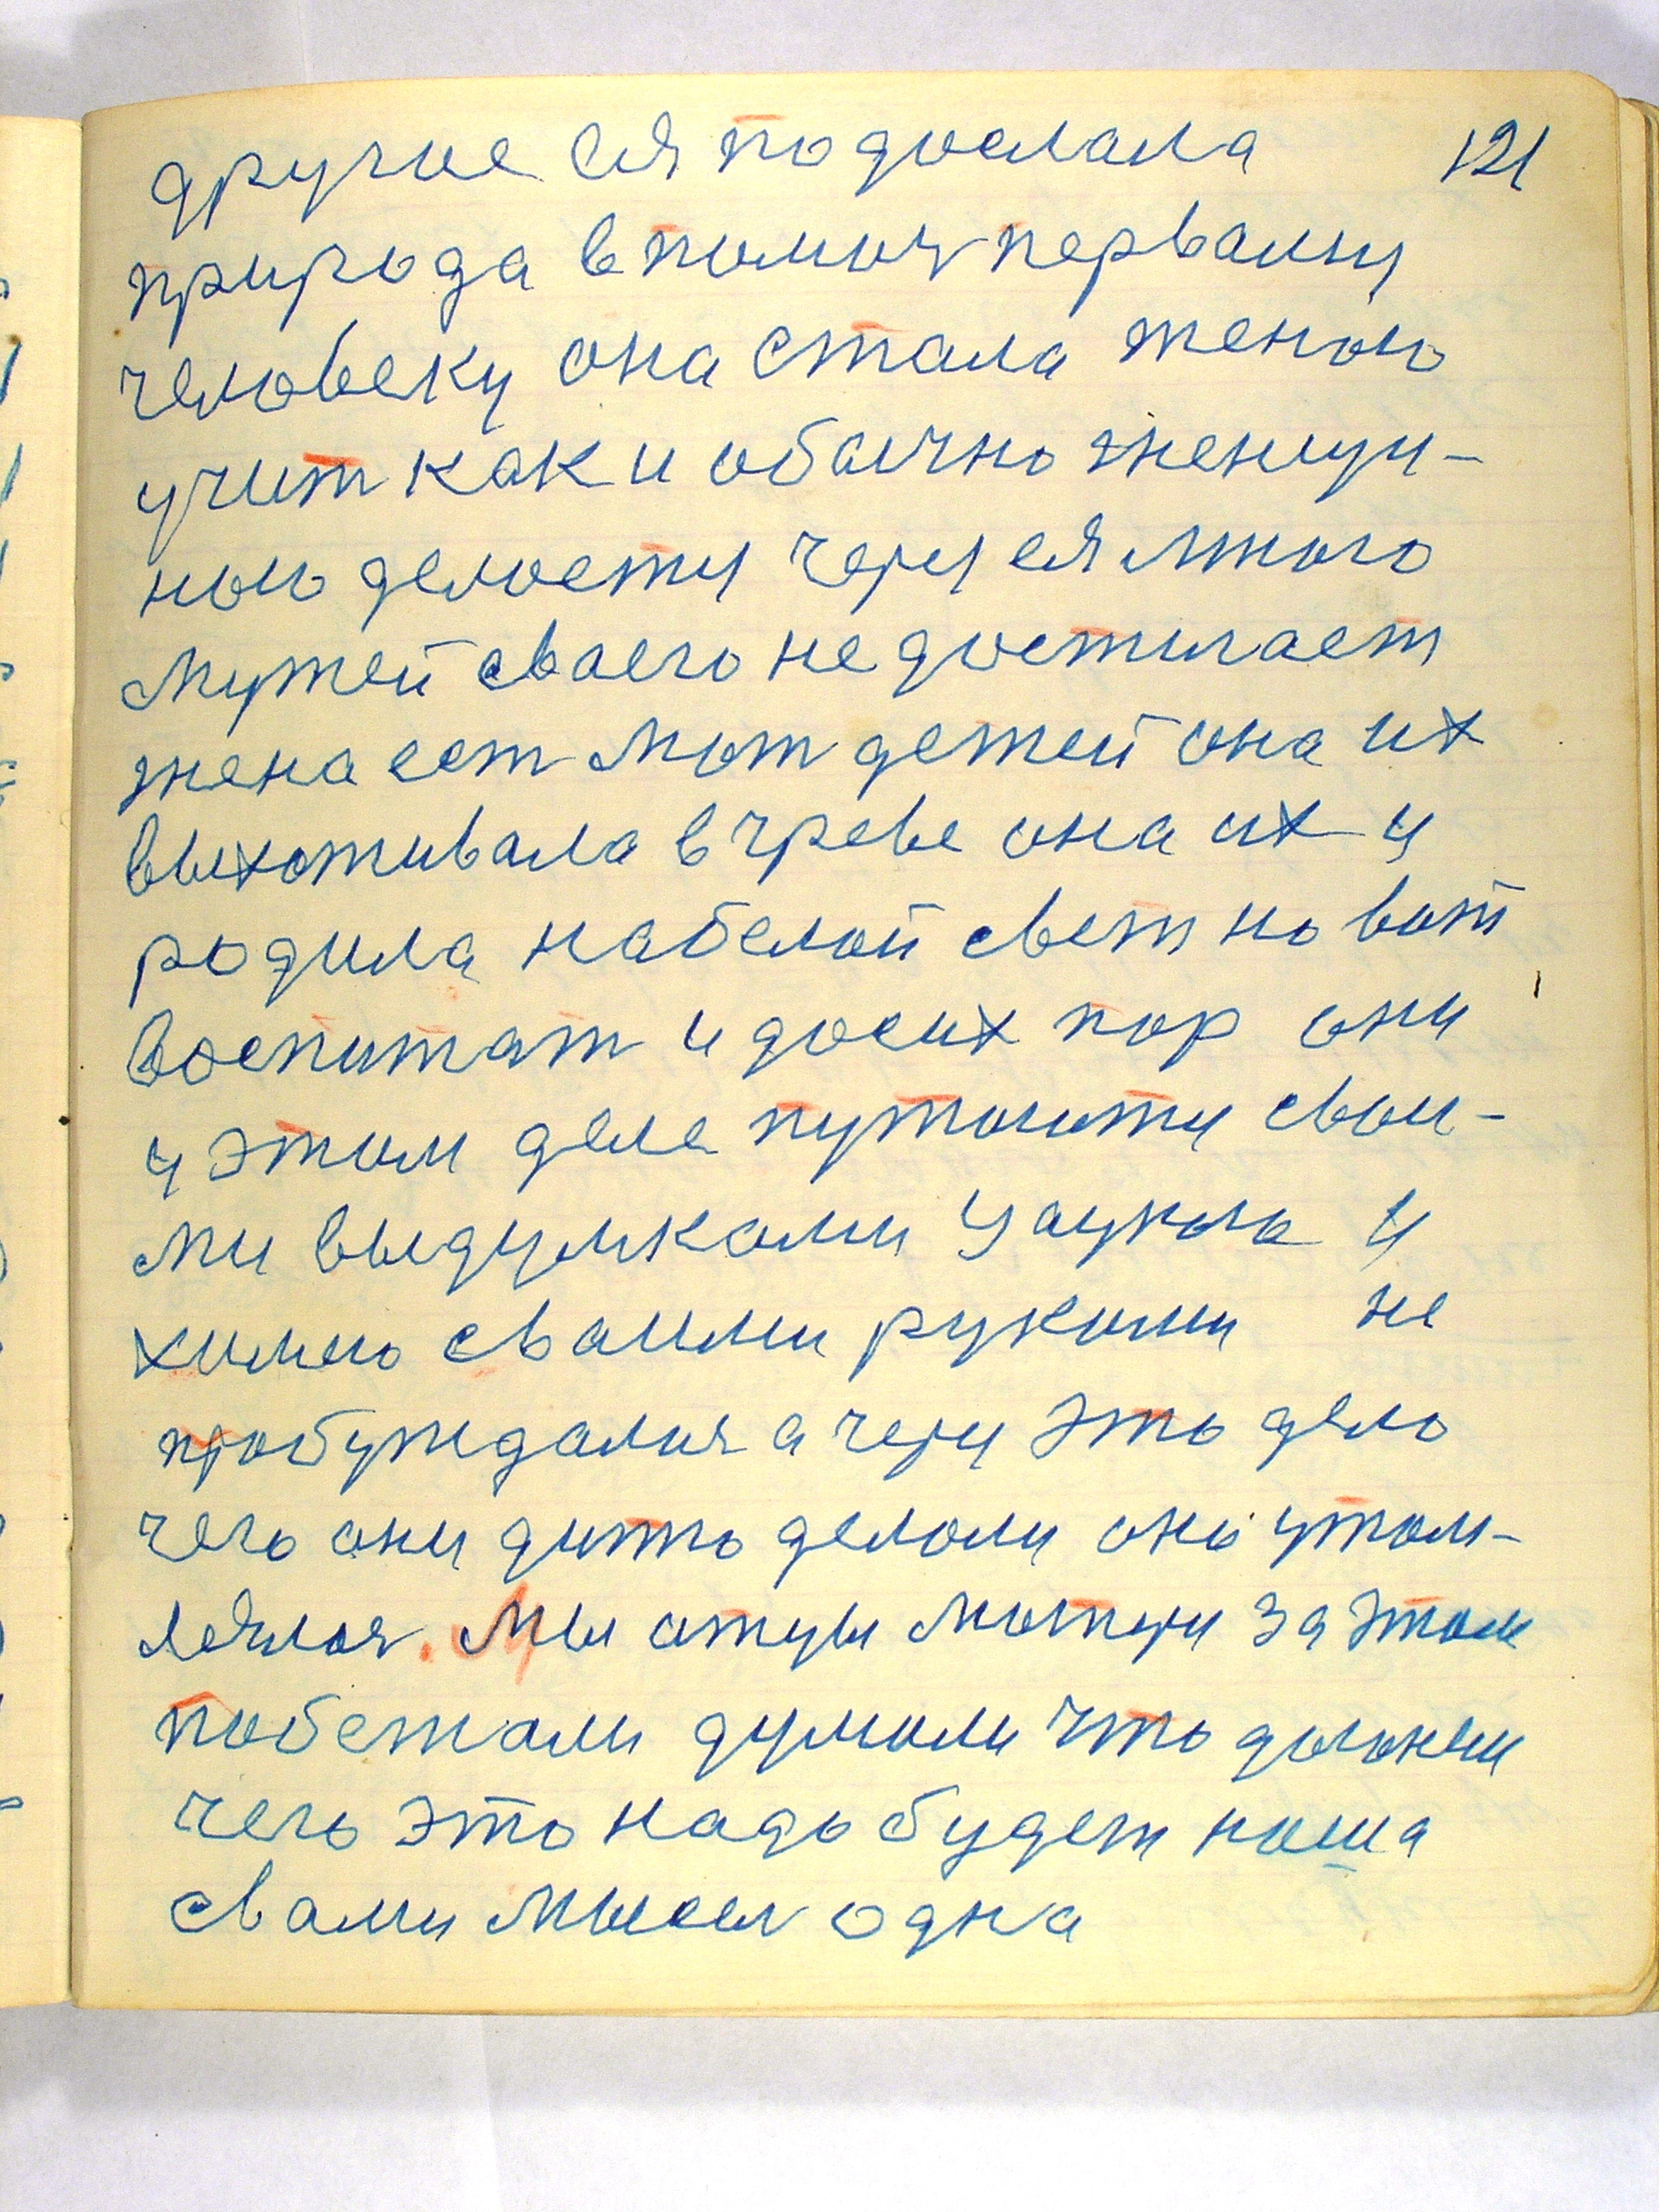 другие ея подослала 121
природа в помочя перваму
человеку она стала женою
учит как и обычно женщи-
ною делоеты черз ея много
мужей сваего не достигает
жена ест мат детей она их
выхотивала в чреве она их и
родила на белой свет но вот
воспитат и досих пор они
у этом деле путоюты свои-
ми выдумками
химею сваими рукоми не
пробуждалися а черз это дело
чего они дито делоли оно утом-
леялося. Мы отцы матери за этом
побежали думоли что должны
чего это надо будет наша
с вами мысел одна